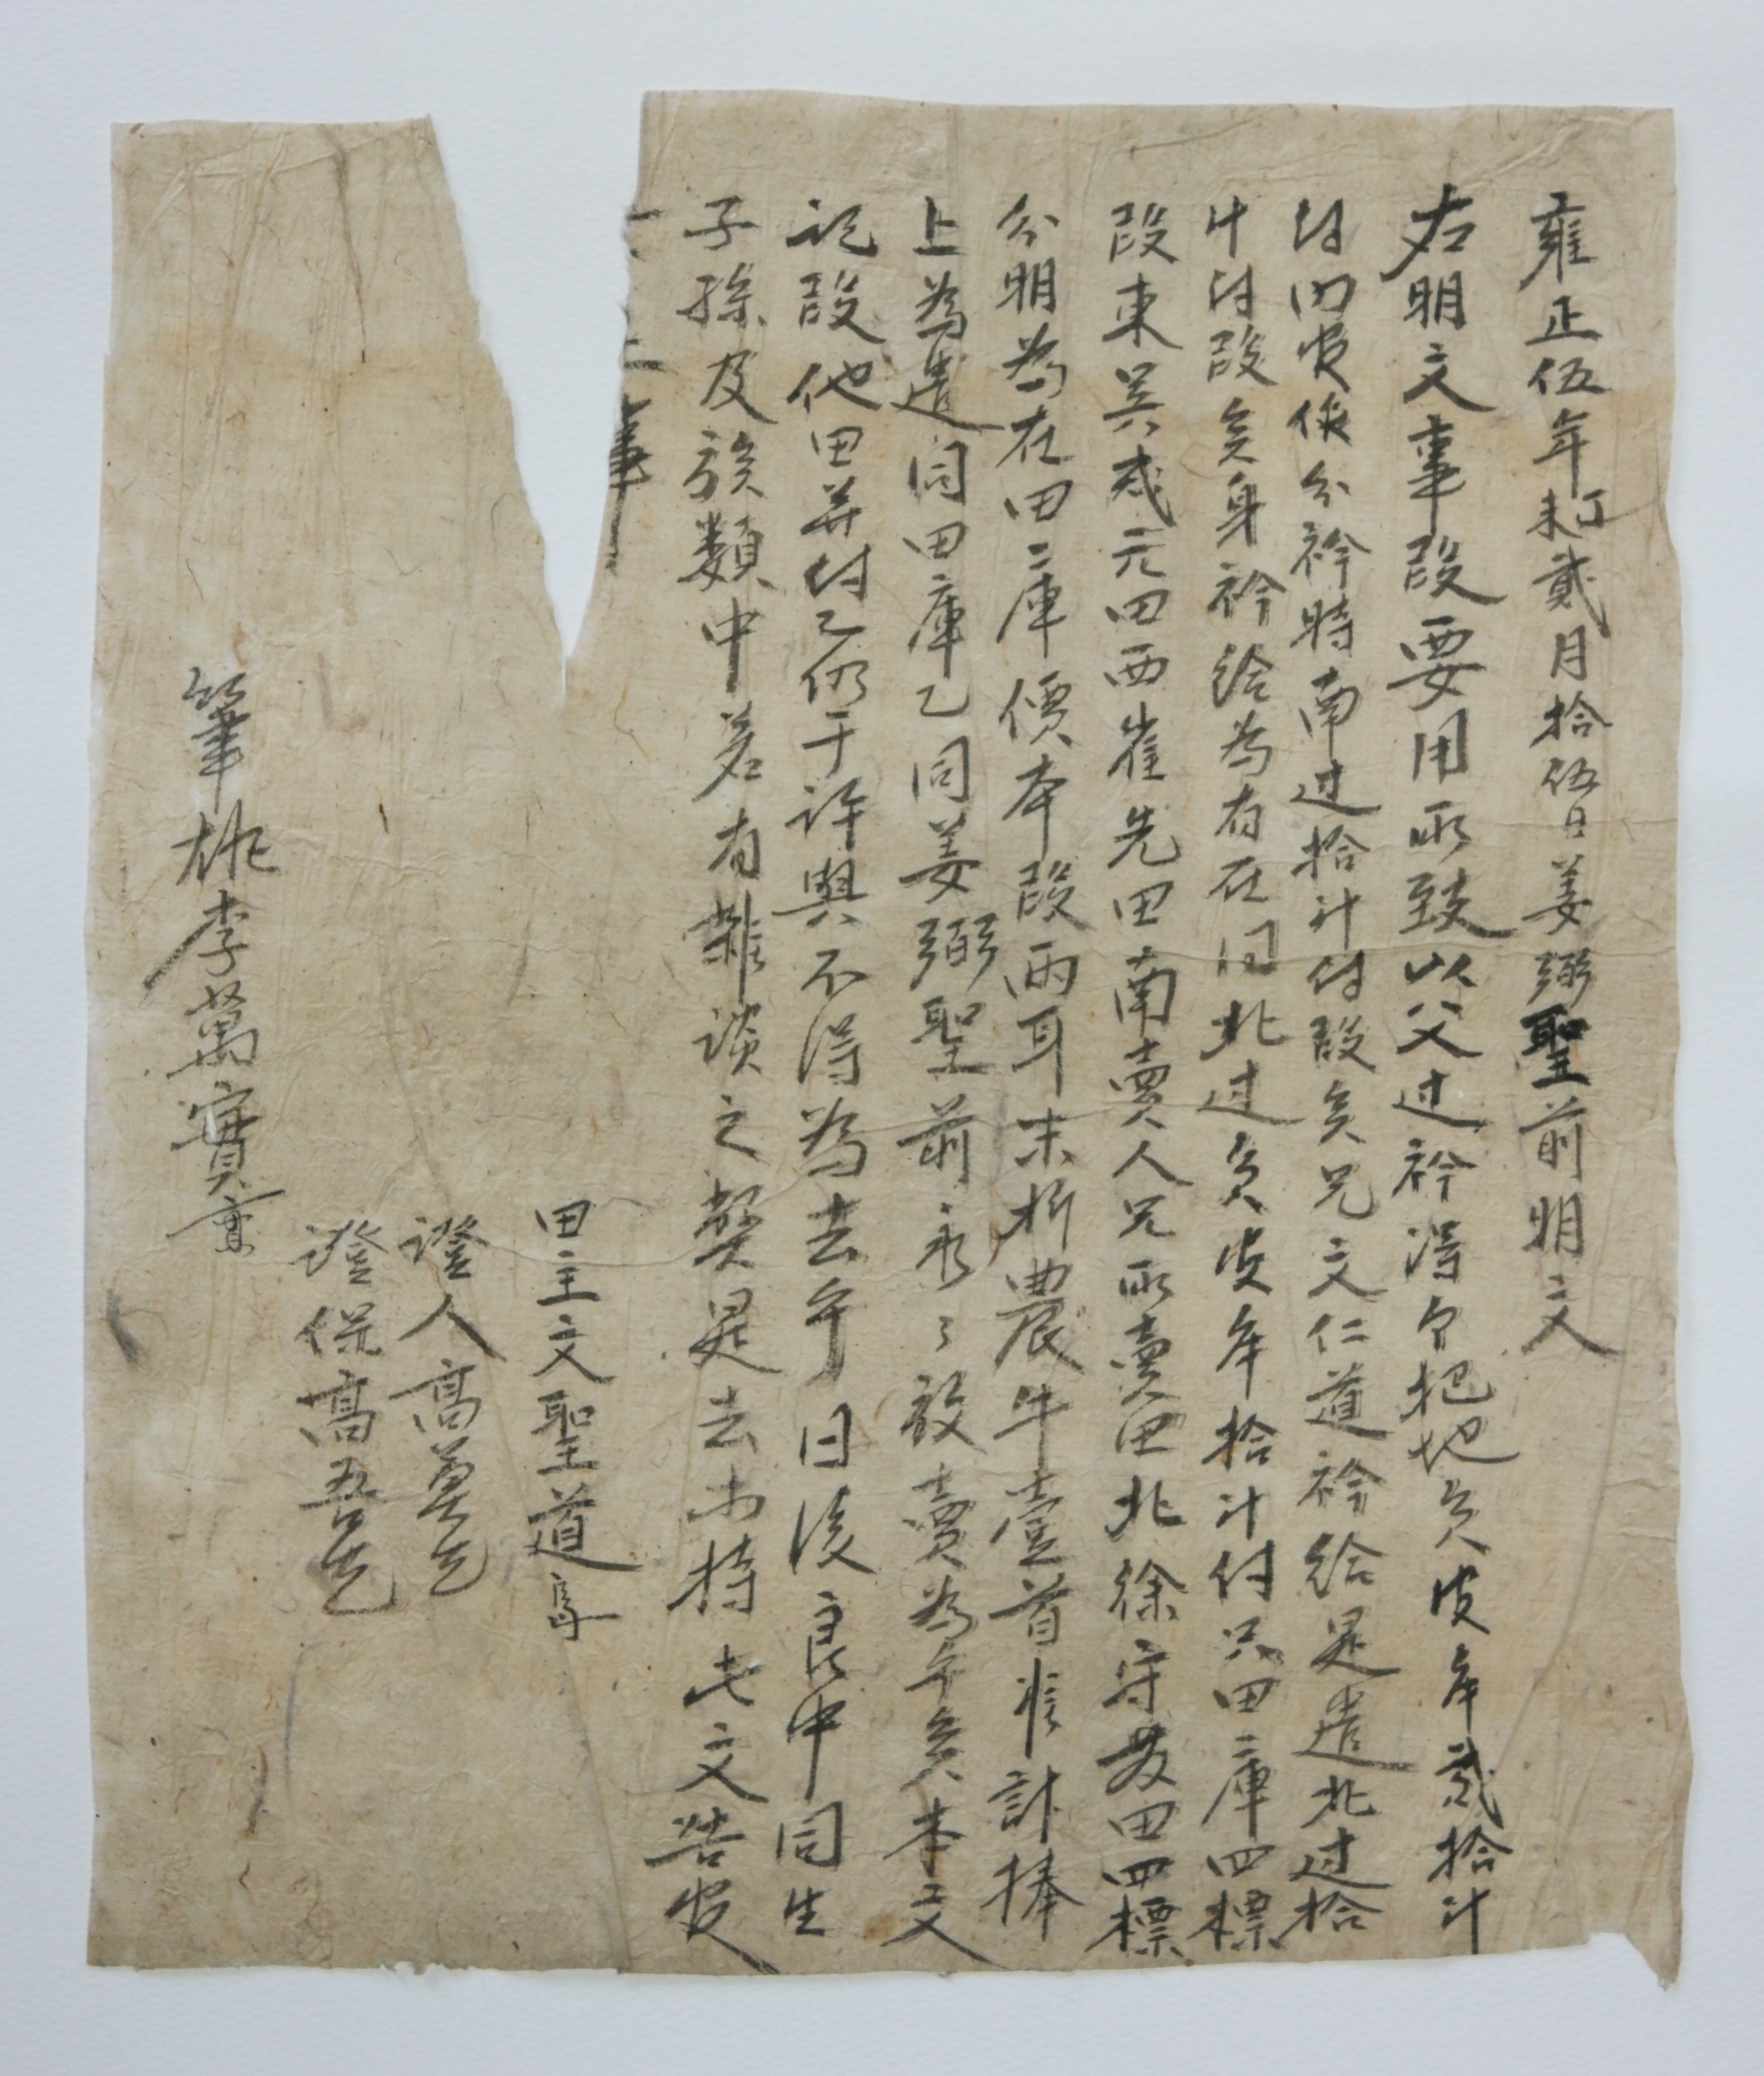 雍正伍年丁未貳月拾伍日姜弼聖前明文
右明文事段要用所致以父过衿得 把地 皮牟貳拾斗
付 衿時南过拾斗付段矣兄文仁道衿給是遣北过拾
斗付段矣身衿給為有在同北过 皮牟拾斗付只田二庫四標
段東吴 元田西崔先田南賣人兄所賣田北徐守 田四標
分明為在田二庫價本段兩耳未折農牛壹首准計捧
上為遣同田庫乙同姜弼聖前永々放賣為乎矣本文
記段他田并付乙仍于許與不得為去乎日後良中同生
子孫及族類中若有雜談之弊是去等持此文告官
事
田主文聖道
證人高
證保高
筆執李萬實